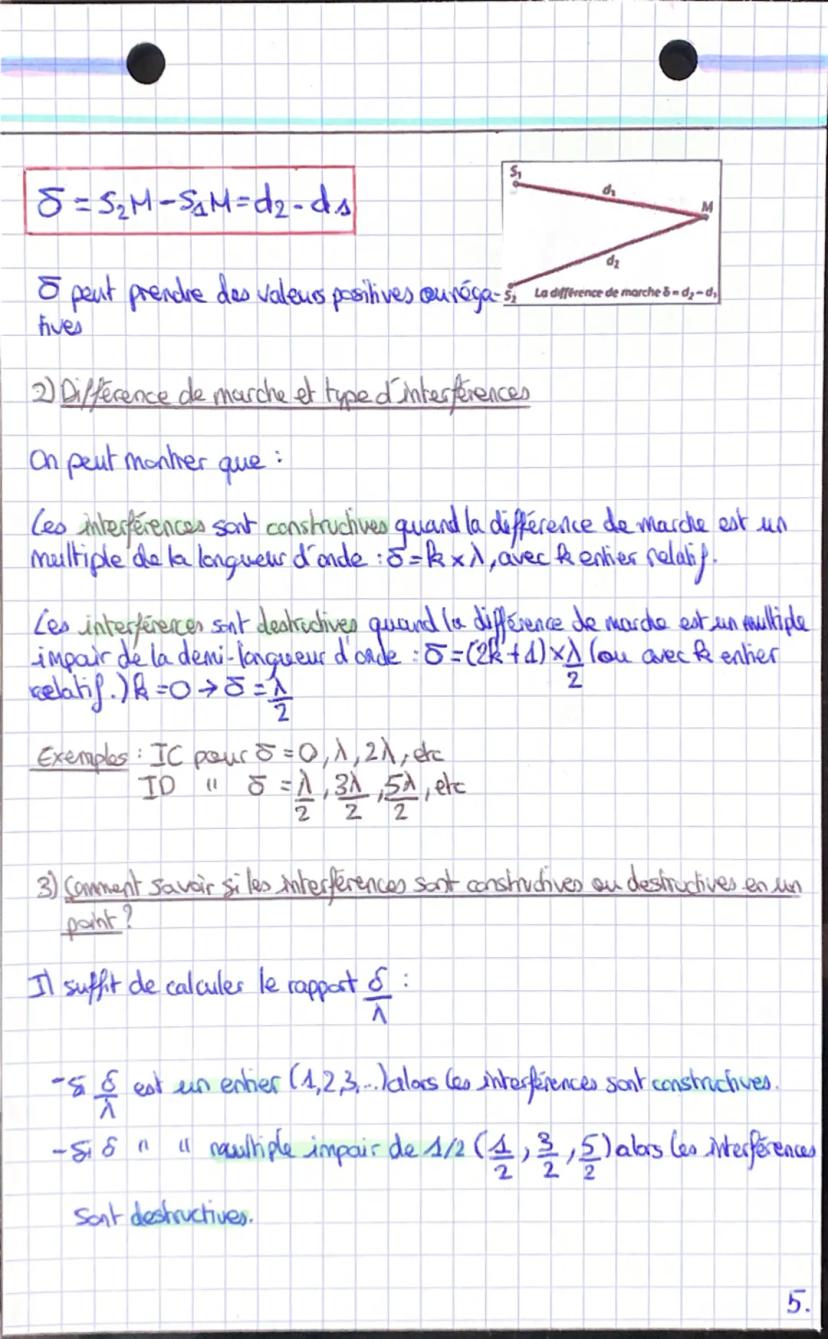 δ = S₂M - S₁M = d₂ - d₁
S₁
d₁
M
d₂
S₂ La différence de marche δ = d₂ - d₁
δ peut prendre des valeurs positives ou néga-
tives
2) Différence de marche et type d'interférences
On peut montrer que :
Les interférences sont constructives quand la différence de marche est un
multiple de la longueur d'onde : δ = k x λ, avec k entier relatif.
Les interférences sont destructives quand la différence de marche est un multiple
impair de la demi-longueur d'onde : δ = (2k + 1) x λ/2 (ou avec k entier
relatif.) k = 0 → δ = λ/2
Exemples : IC pour δ = 0, λ, 2λ, etc
ID " δ = λ/2, 3λ/2, 5λ/2, etc
3) Comment savoir si les interférences sont constructives ou destructives en un
point ?
Il suffit de calculer le rapport δ/λ :
- Si δ/λ est un entier (1,2,3,...) alors les interférences sont constructives.
- Si δ " " multiple impair de 1/2 (1/2, 3/2, 5/2) alors les interférences
sont destructives.
5.